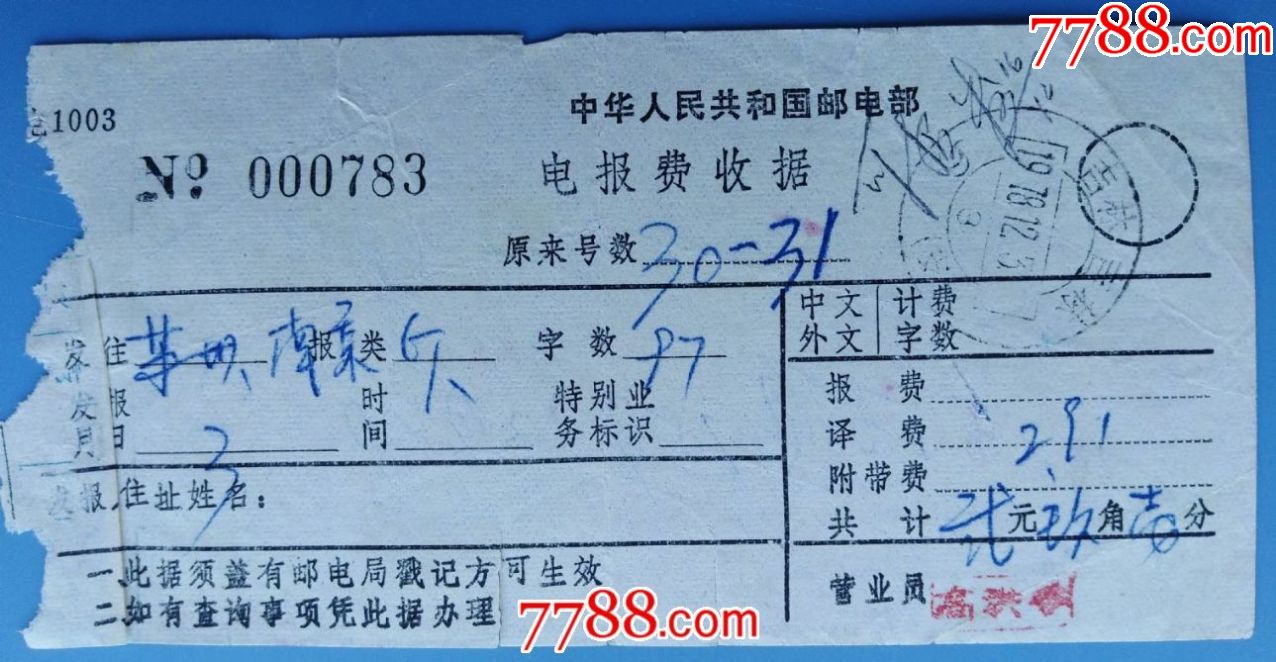 7788.com
电1003
中华人民共和国邮电部
No. 000783
电报费收据
原来号数 30-31
发往 南京 报类 字数 97
发报日 3 时间 特别业务标识
发报人住址姓名:
中文 外文 计费字数
报费
译费 2.91
附带费
共计 贰元玖角壹分
一、此据须盖有邮电局戳记方可生效
二、如有查询事项凭此据办理
营业员
吉林
1978.12.3
7788.com